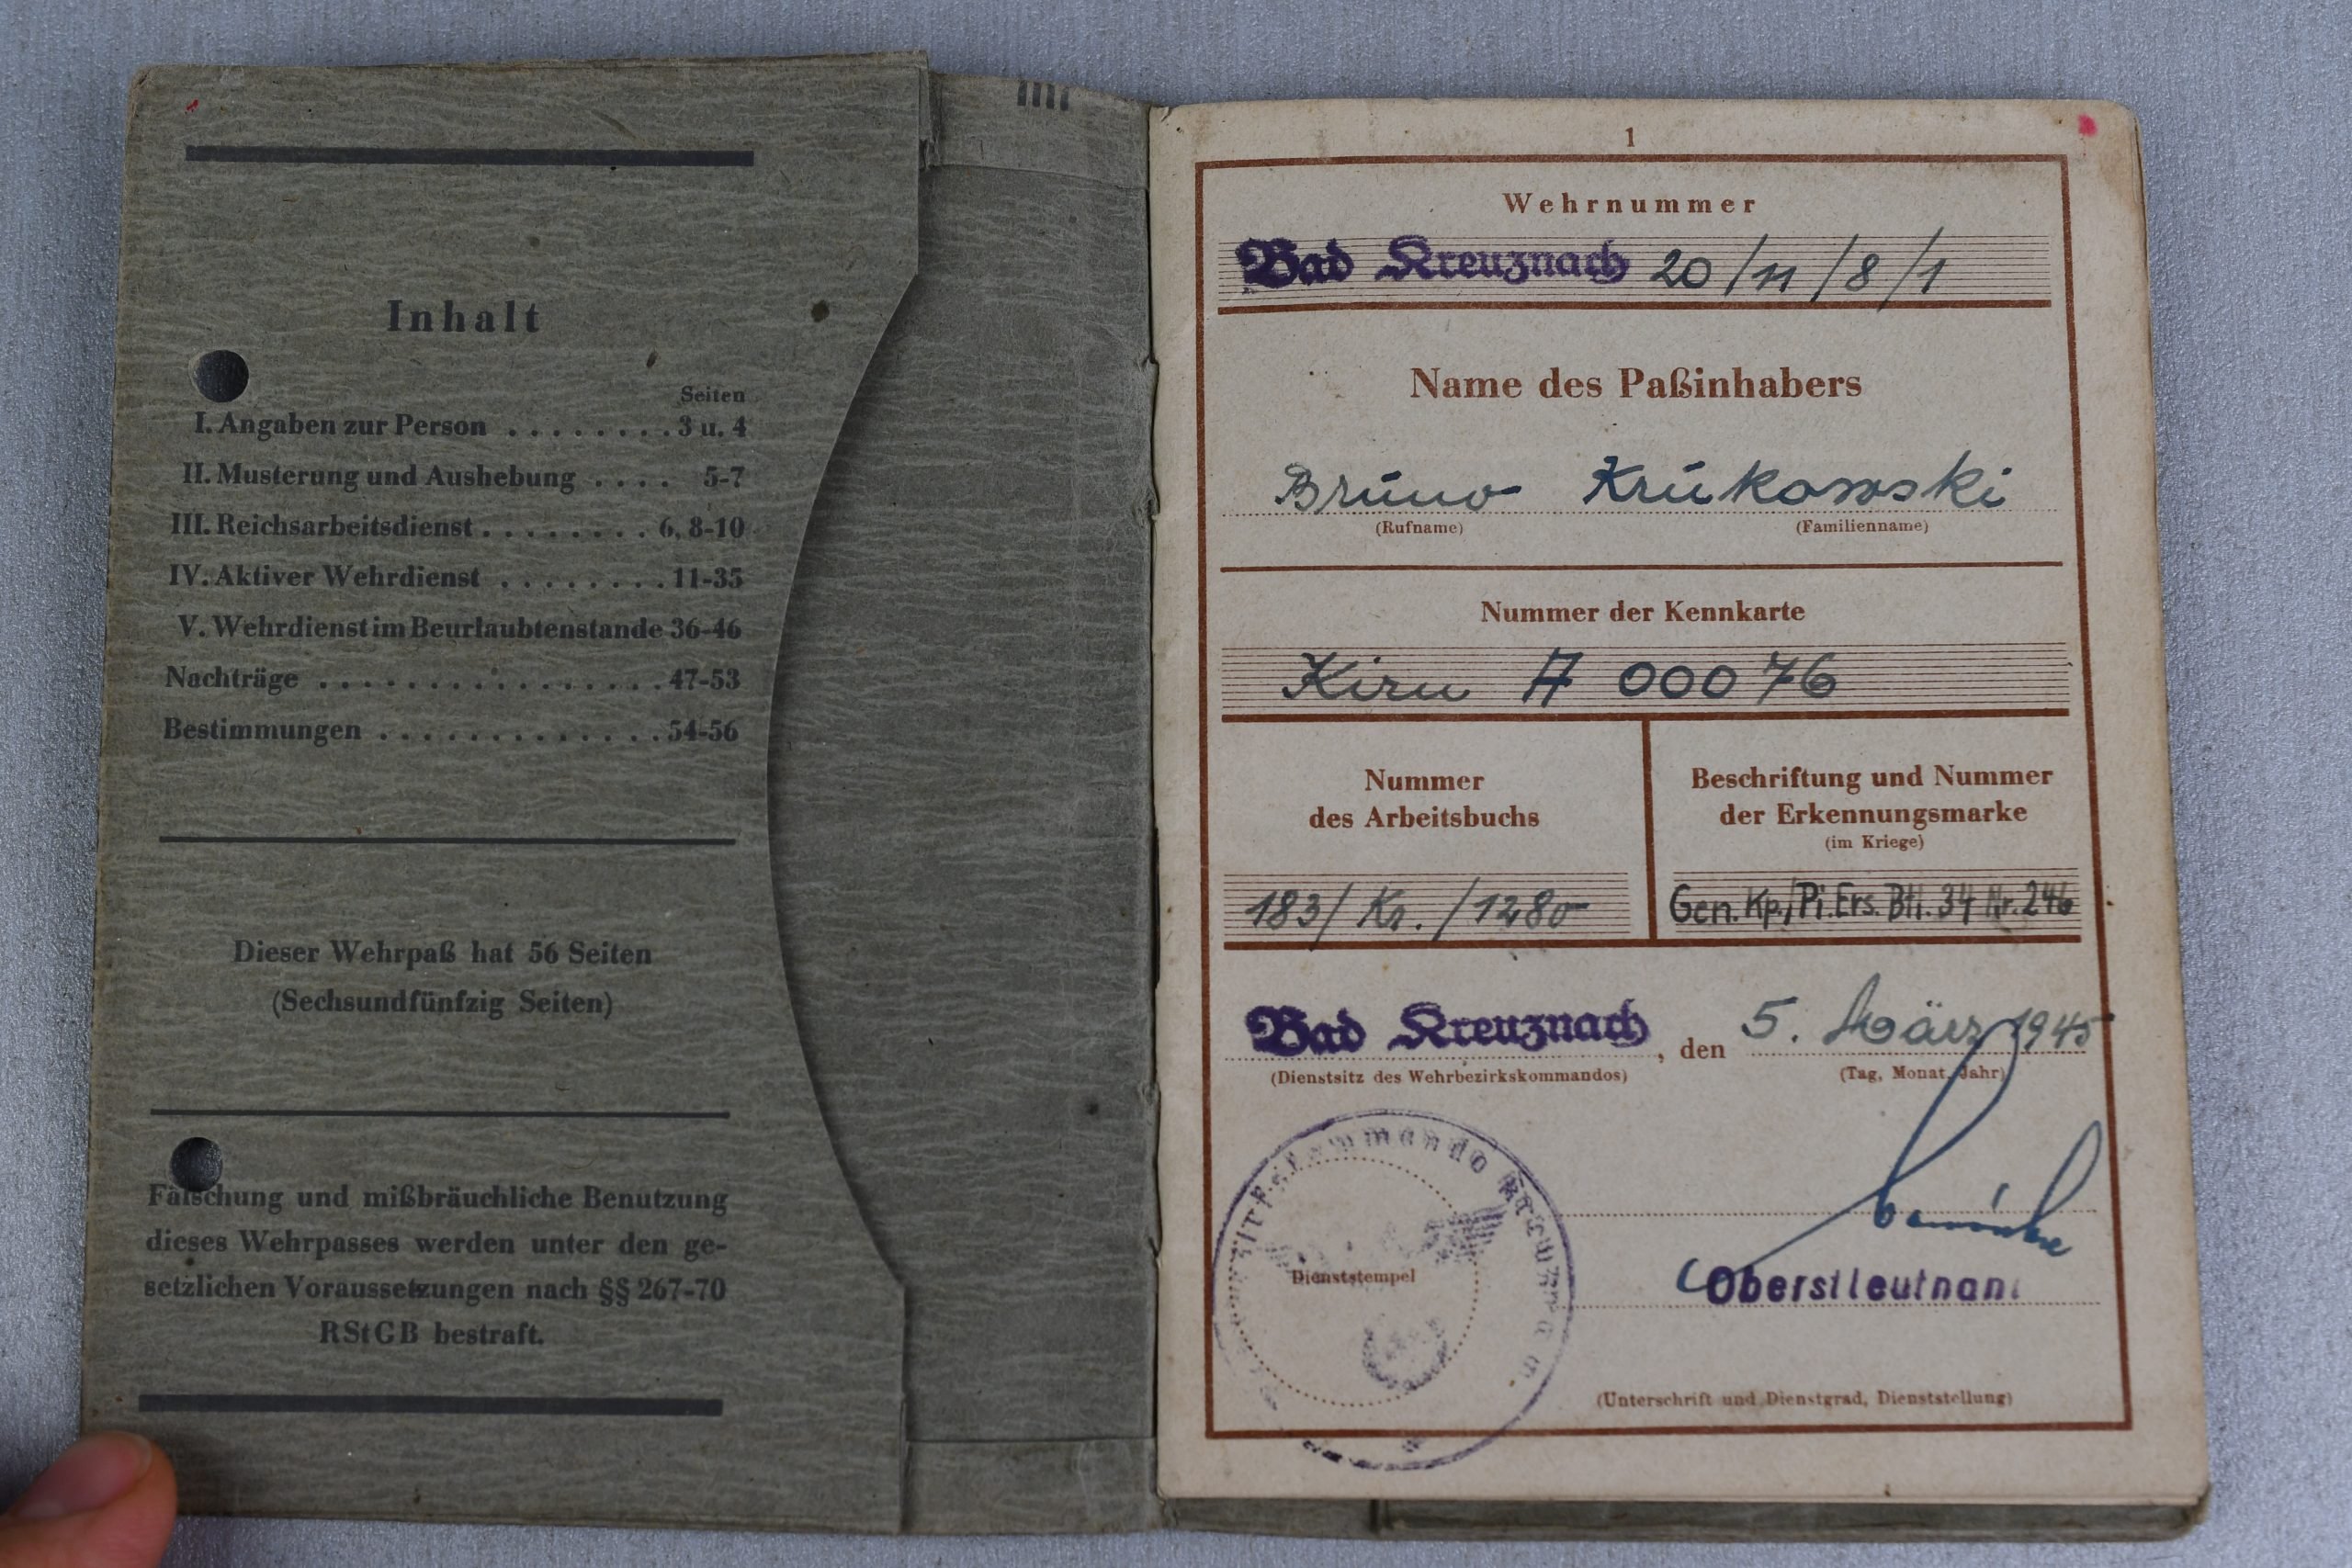 Inhalt
Seiten
I. Angaben zur Person . . . . . . . . 3 u. 4
II. Musterung und Aushebung . . . . 5-7
III. Reichsarbeitsdienst . . . . . . . . 6, 8-10
IV. Aktiver Wehrdienst . . . . . . . . 11-35
V. Wehrdienst im Beurlaubtenstande 36-46
Nachträge . . . . . . . . . . . . . . . . 47-53
Bestimmungen . . . . . . . . . . . . . 54-56
Dieser Wehrpaß hat 56 Seiten
(Sechsundfünfzig Seiten)
Fälschung und mißbräuchliche Benutzung
dieses Wehrpasses werden unter den ge-
setzlichen Voraussetzungen nach §§ 267-70
RStGB bestraft.
1
Wehrnummer
Bad Kreuznach 20/11/8/1
Name des Paßinhabers
Bruno Krukowski
(Rufname) (Familienname)
Nummer der Kennkarte
Kirn A 00076
Nummer
des Arbeitsbuchs
183/Kr./1280
Beschriftung und Nummer
der Erkennungsmarke
(im Kriege)
Gen. Kp./Pi. Ers. Btl. 34 Nr. 246
Bad Kreuznach, den 5. März 1945
(Dienstsitz des Wehrbezirkskommandos) (Tag, Monat, Jahr)
Dienststempel
Oberstleutnant
(Unterschrift und Dienstgrad, Dienststellung)